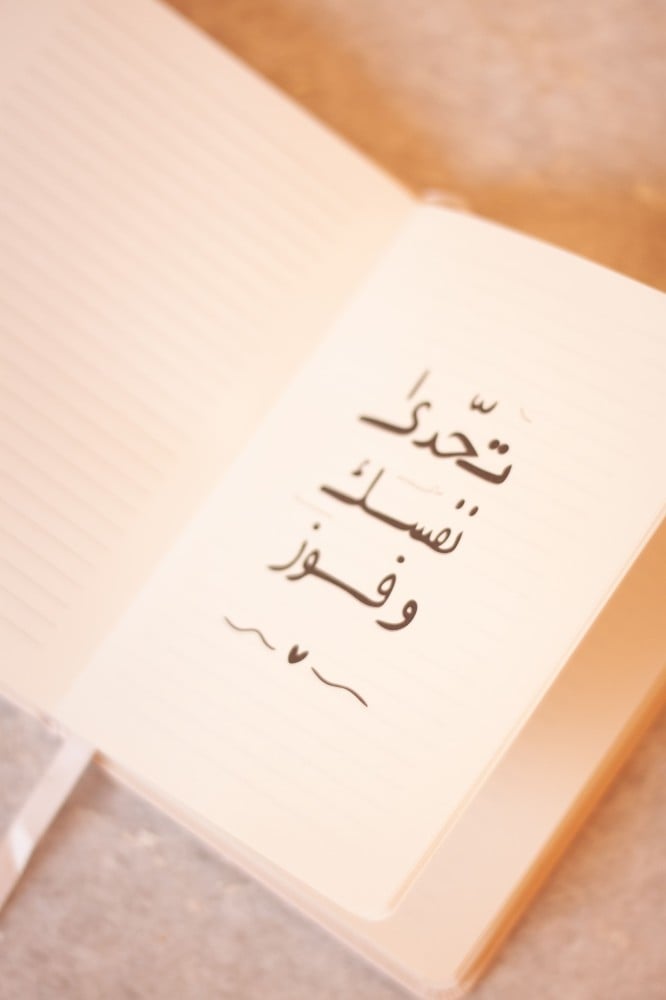 تحّدىٰ
نفسك
وفوز